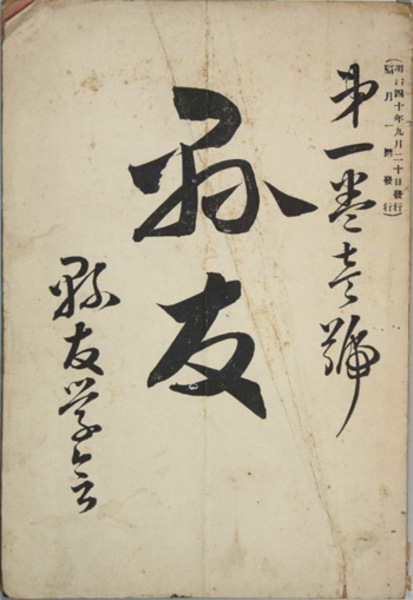 明治四十年九月二十日發行
(隔月一囘發行)
第一巻壱號
縣友
縣友学会